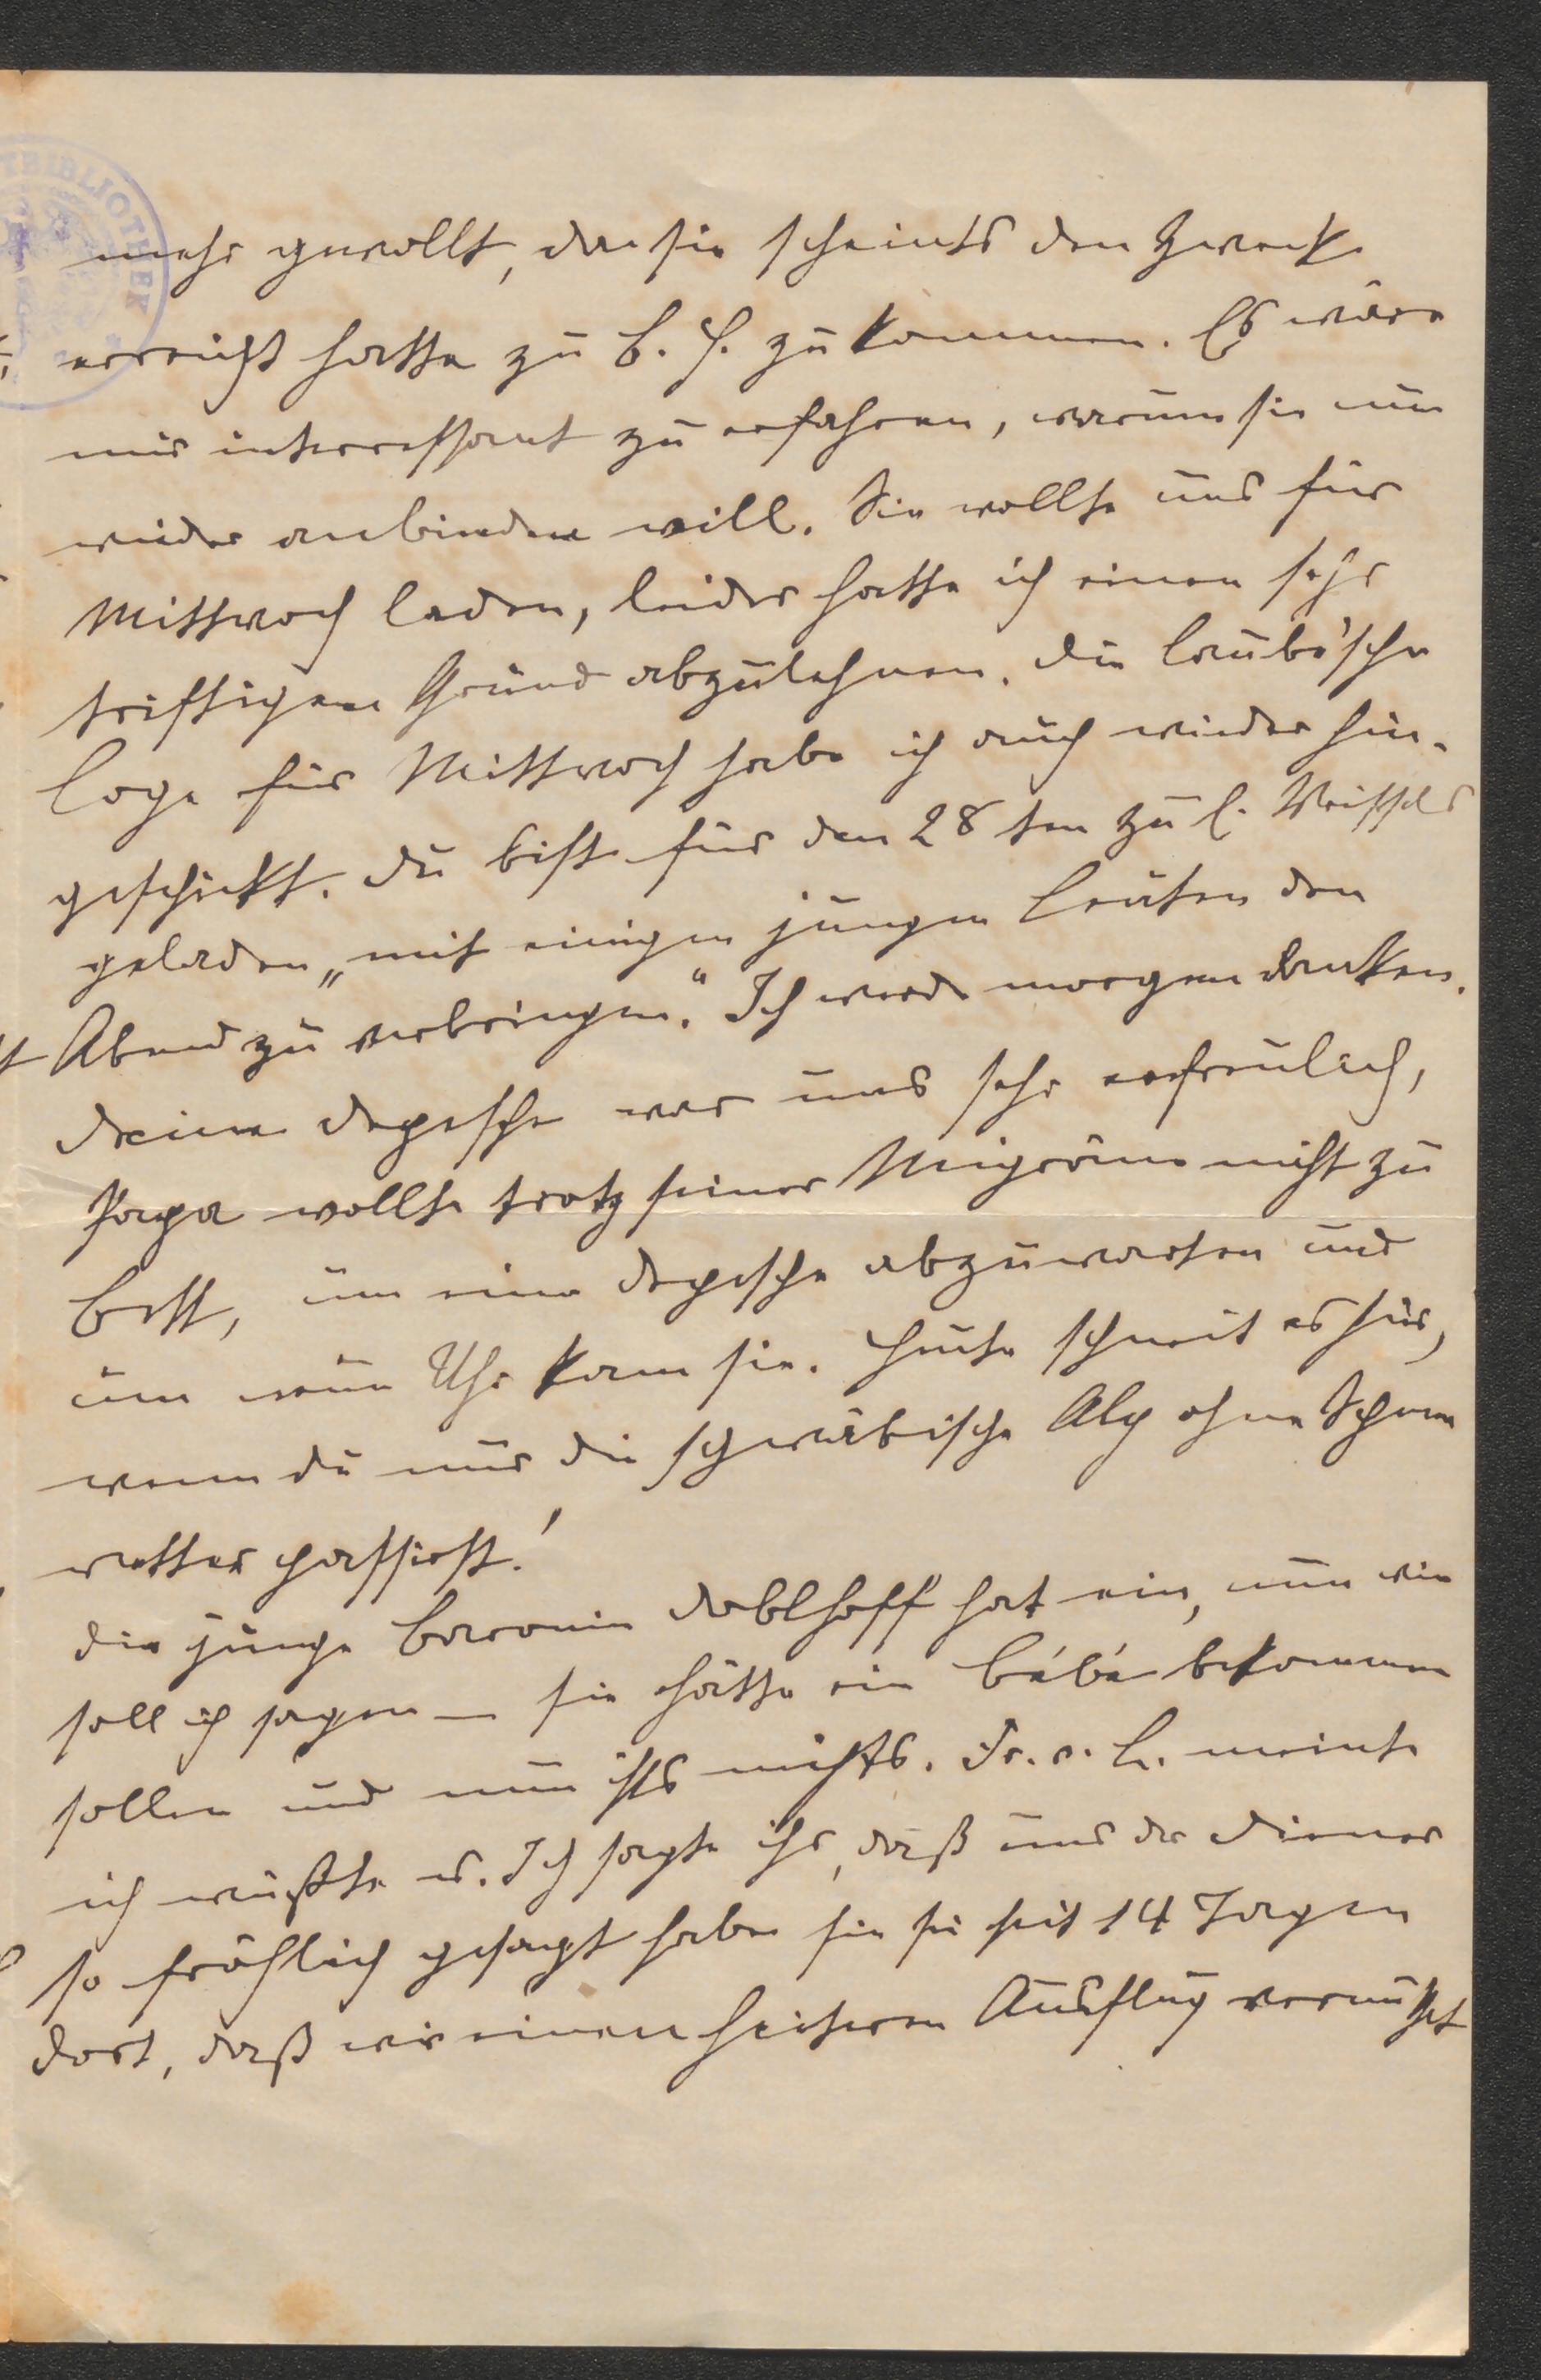 mehr gewollt, da sie scheints den Zweck
erreicht hatte zu B. H. zu kommen. Es wäre
mir interessant zu erfahren, warum sie nun
wieder anbinden will. Sie wollte uns für
Mittwoch laden, leider hatte ich einen sehr
triftigen Grund abzulehnen. Die Laube'sche
Loge für Mittwoch habe ich auch wieder hin-
geschickt. Du bist für den 28ten zu L.
geladen „mit einigen jungen Leuten den
Abend zu verbringen." Ich werde morgen danken.
Deine Depesche war uns sehr erfreulich,
Papa wollte trotz seiner Migräne nicht zu
Bett, um eine Depesche abzuwarten und
um neun Uhr kam sie. Heute schneit es hier,
wenn du nur die schwäbische Alp ohne Schnee
wetter passirst!
Die junge Baronin Doblhoff hat ein, nun wie
soll ich sagen – sie hätte ein bébé bekommen
sollen und nun ists nichts. Fr. v. L. meinte
ich wüßte es. Ich sagte ihr, daß uns der Diener
so fröhlich gesagt habe sie sei seit 14 Tagen
dort, daß wir einen heiteren Ausflug vermuthet
THIBLIOTHEK